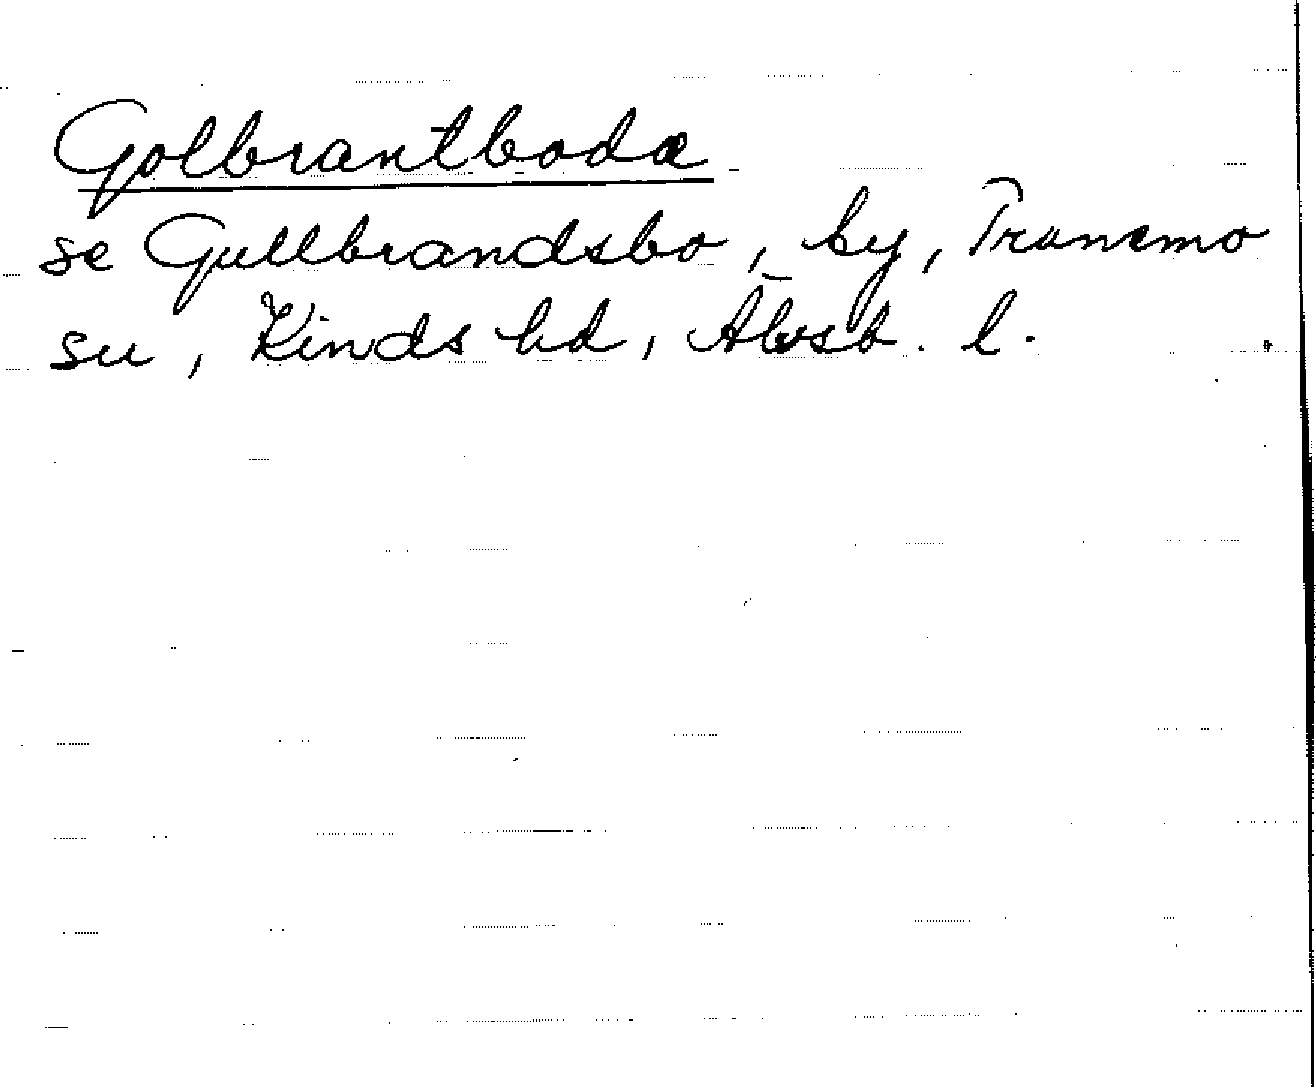 Golbrantboda
se Gullbrandsbo, by, Tranemo
sn, Kinds hd, Älvsb. l.